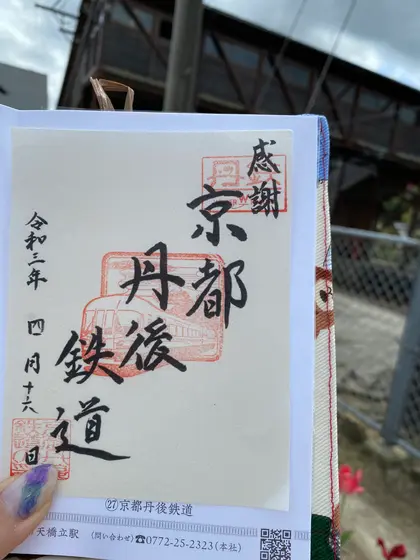 感謝
京都
丹後
鉄道
令和三年 四月十六日
㉗京都丹後鉄道
天橋立駅 〈問い合わせ〉☎0772-25-2323(本社)